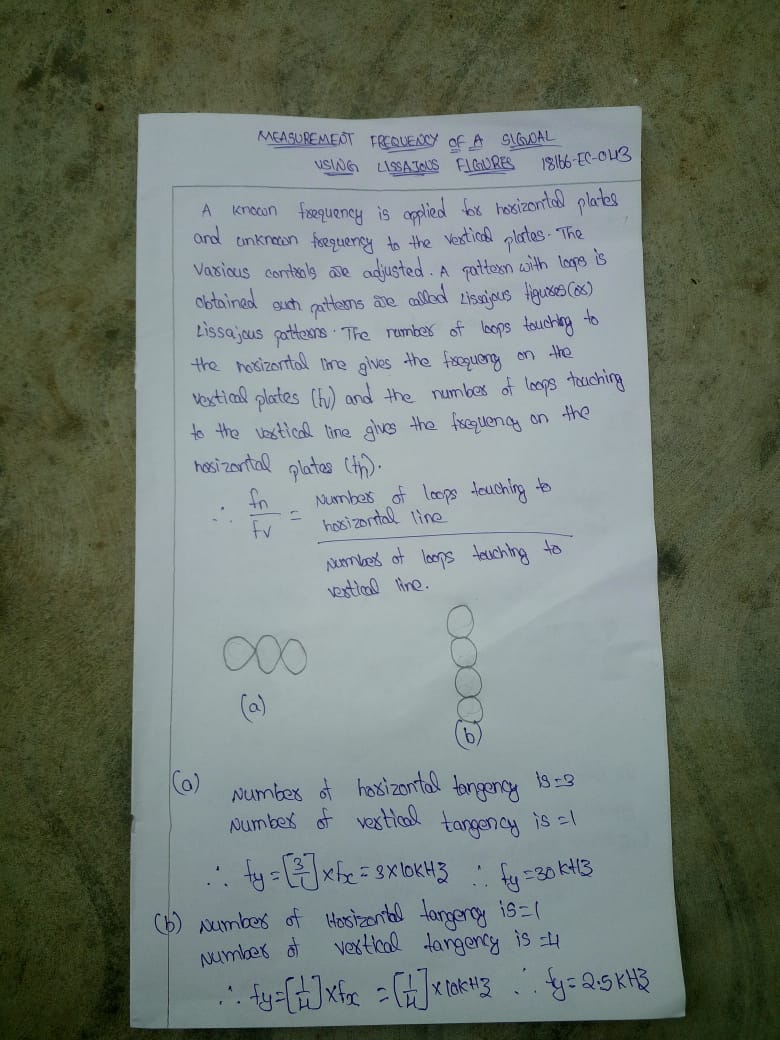 MEASUREMENT FREQUENCY OF A SIGNAL
USING LISSAJOUS FIGURES 18166-EC-043
A known frequency is applied for horizontal plates
and unknown frequency to the vertical plates. The
Various controls are adjusted. A pattern with loops is
obtained such patterns are called Lissajous figures (or)
Lissajous patterns. The number of loops touching to
the horizontal line gives the frequency on the
vertical plates (fv) and the number of loops touching
to the vertical line gives the frequency on the
horizontal plates (fh).
∴ fh/fv = Number of loops touching to
horizontal line
Number of loops touching to
vertical line.
(a)
(b)
(a) Number of horizontal tangency is = 3
Number of vertical tangency is = 1
∴ fy = [3/1] x fx = 3 x 10KHz ∴ fy = 30 KHz
(b) Number of Horizontal tangency is = 1
Number of vertical tangency is = 4
∴ fy = [1/4] x fx = [1/4] x 10KHz ∴ fy = 2.5 KHz